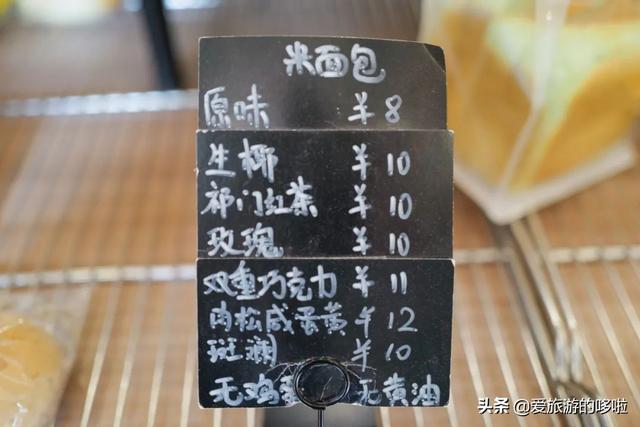 米面包
原味 ¥8
生椰 ¥10
祁门红茶 ¥10
玫瑰 ¥10
双重巧克力 ¥11
肉松咸蛋黄 ¥12
斑斓 ¥10
无鸡蛋 无黄油
头条 @爱旅游的哆啦